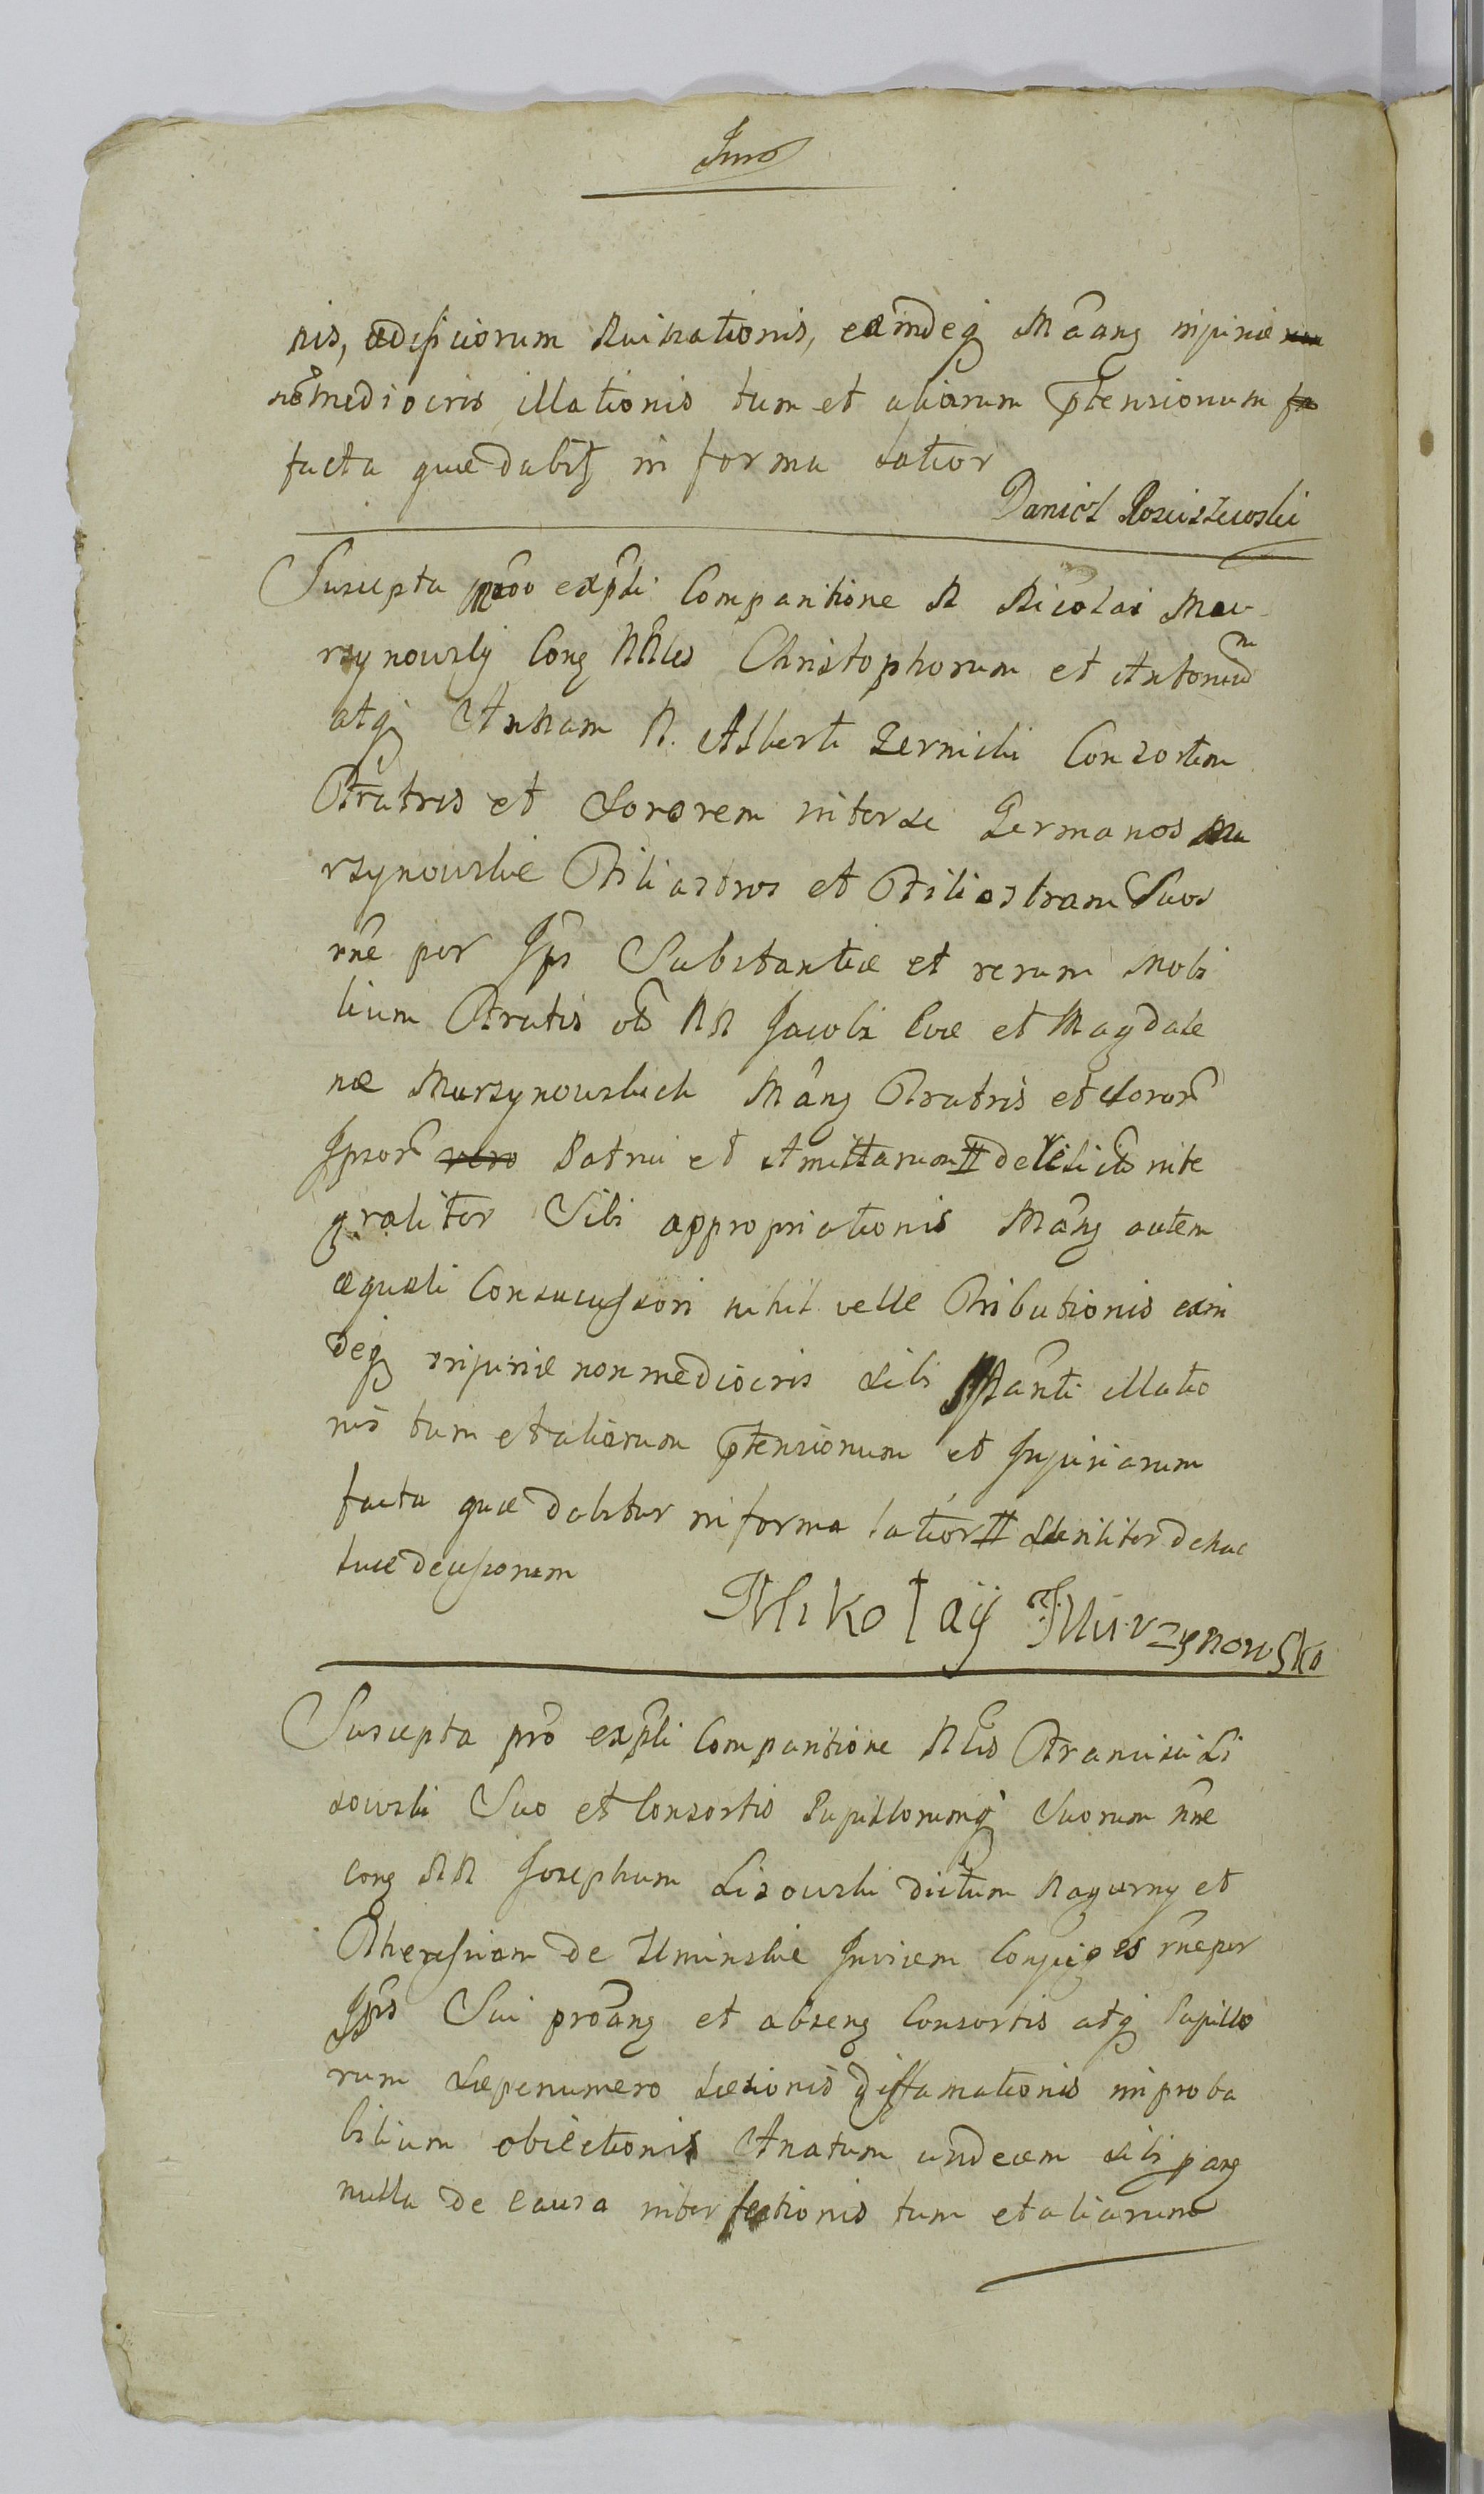 nis, ædificiorum Ruinationis, eamdeq Mãanq injuriæ
nõ mediocris illationis tum et aliarum ptensionum
facta quæ dabitʒ in forma latior
Daniel Rosciszewski
Suscepta pro expĺi Comparitione N Nicolai Mur
rzynowsky Conq NNles Christophorum et Antonium
atq Annam N. Alberti Zernicki Consortem
Fratres et Sororem inter se Germanos Mu
rzynowskie Filiastros et Filiastram Suos
rñe per Ips Substantiæ et rerum Mobi
lium Fratris ols NN Jacobi Evæ et Magdale
næ Murzynowskich Mãnq Fratris et Soror
Ipsor vero Patrui et Amittarum # derelictæ inte
graliter Sibi appropriationis Mãnq autem
æquali Consuccessori nihil velle Tributionis eam
deq injuriæ non mediocris sibi Mãnti illatio
nis tum et aliarum ptensionum et Injuriarum
facta quæ dabitur in forma latior #
Mikołaÿ Murzynowski
Suscepta pro expĺi Comparitione Nlis Francisci Li
sowski Suo et Consortis Pupillorumq Suorum ñne
conq NN Josephum Lisowski dictum Nagurny et
Theresiam de Uminskie Invicem Conjuges rñe per
Ips Sui proãnq et absenq Consortis atq Pupillo
rum sæpenumero Læsionis diffamationis improba
bilium obiectionis Anatum undecem sibi
nulla de causa interfectionis tum et aliarum